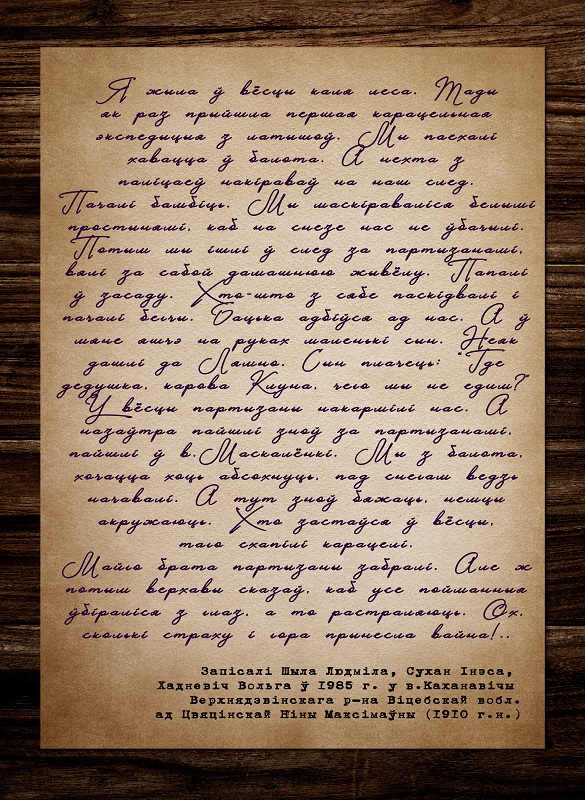 Я жыла ў вёсцы каля леса. Тады
як раз прыйшла першая карацельная
экспедыцыя з латышоў. Мы паехалі
хавацца ў балота. А нехта з
паліцаеў накіраваў на наш след.
Пачалі бамбіць. Мы маскіраваліся белымі
простынямі, каб на снезе нас не ўбачылі.
Потым мы ішлі ў след за партызанамі,
вялі за сабой дамашнюю жывёлу. Папалі
ў засаду. Хто-што з сябе паскідвалі і
пачалі бегчы. Бацька адбіўся ад нас. А ў
мяне яшчэ на руках маленькі сын. Неяк
дашлі да Лямно. Сын плачець: "Где
дедушка, карова Клуна, чего мы не едим?"
У вёсцы партызаны накармілі нас. А
назаўтра пайшлі зноў за партызанамі,
пайшлі ў в.Маскалёнкі. Мы з балота,
хочацца хоць абсохнуць, пад снегам ведзь
начавалі. А тут зноў бяжаць, немцы
акружаюць. Хто застаўся ў вёсцы,
таго схапілі карацелі.
Майго брата партызаны забралі. Але ж
потым верхавы сказаў, каб усе пойманныя
ўбіраліся з глаз, а то растраляюць. Ох,
сколькі страху і гора прынесла вайна!..
Запісалі Шыла Людміла, Сухан Інэса,
Хадневіч Вольга ў 1985 г. у в.Каханавічы
Верхнядзвінскага р-на Віцебскай вобл.
ад Цвяцінскай Ніны Максімаўны (1910 г.н.)